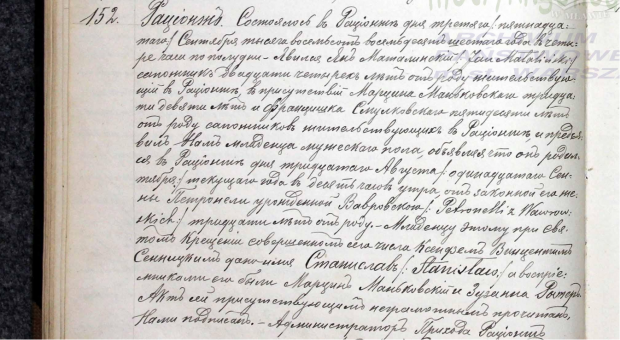 152. Раціонжъ. Состоялось въ Раціонжѣ дня третьяго /: пятнадца:
таго:/ Сентября тысяча восемьсотъ восемьдесятъ шестаго года въ четы:
ре часа по полудни. — Явился Янъ /: Jan
сапожникъ, двадцати четырехъ лѣтъ отъ роду, жительствую:
щій въ Раціонжѣ, въ присутствіи Марцина Маньковскаго тридца:
ти девяти лѣтъ и Францишка Смулковскаго пятидесяти лѣтъ
отъ роду, сапожниковъ жительствующихъ въ Раціонжѣ, и предъя:
вилъ Намъ младенца мужескаго пола, объявляя что онъ родил:
ся въ Раціонжѣ дня тридцатаго Августа /: одинадцатаго Сен:
тября:/ текущаго года въ десять часовъ утра, отъ законной его же:
ны Петронели урожденной Вавровской /: Petronelli z Wawrow:
skich:/ тридцати лѣтъ отъ роду. — Младенцу этому при Свя:
томъ Крещеніи совершенномъ сего числа Ксендзомъ Винцентимъ
дано имя Станиславъ /: Stanisław:/ а воспріе:
мниками его были Марцинъ Маньковскій и Зузанна
Актъ сей присутствующимъ неграмотнымъ прочитанъ,
Нами подписанъ. — Администраторъ Прихода Раціонжъ
ARCHIWUM
PAŃSTWOWE